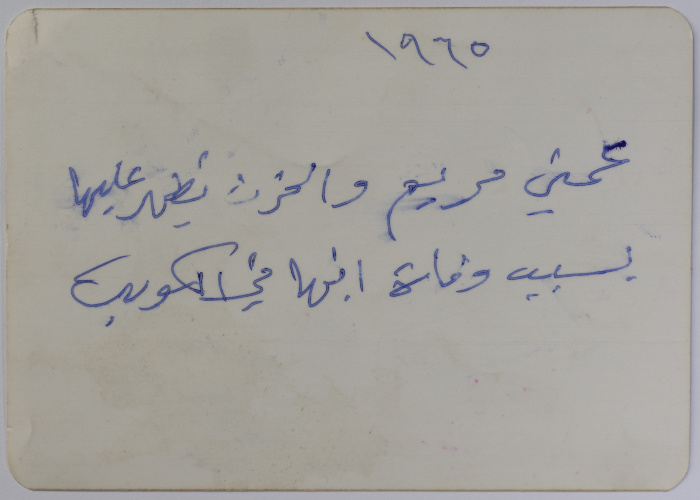 ١٩٦٥
عمتي مريم والحزن يظهر عليها
بسبب وفاة ابنها في الكويت